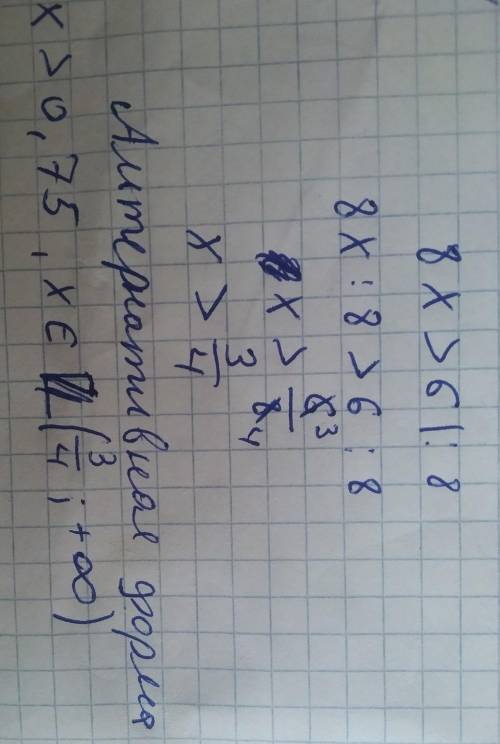 8x > 6 | : 8
8x : 8 > 6 : 8
x > 6/8 3/4
x > 3/4
Альтернативная форма
x > 0,75 , x ∈ (3/4 ; +∞)